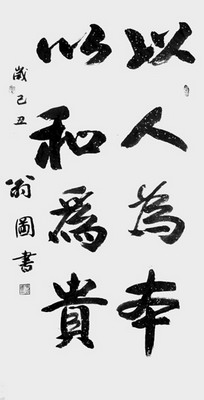 以人為本
以和為貴
歲己丑
翁圖書